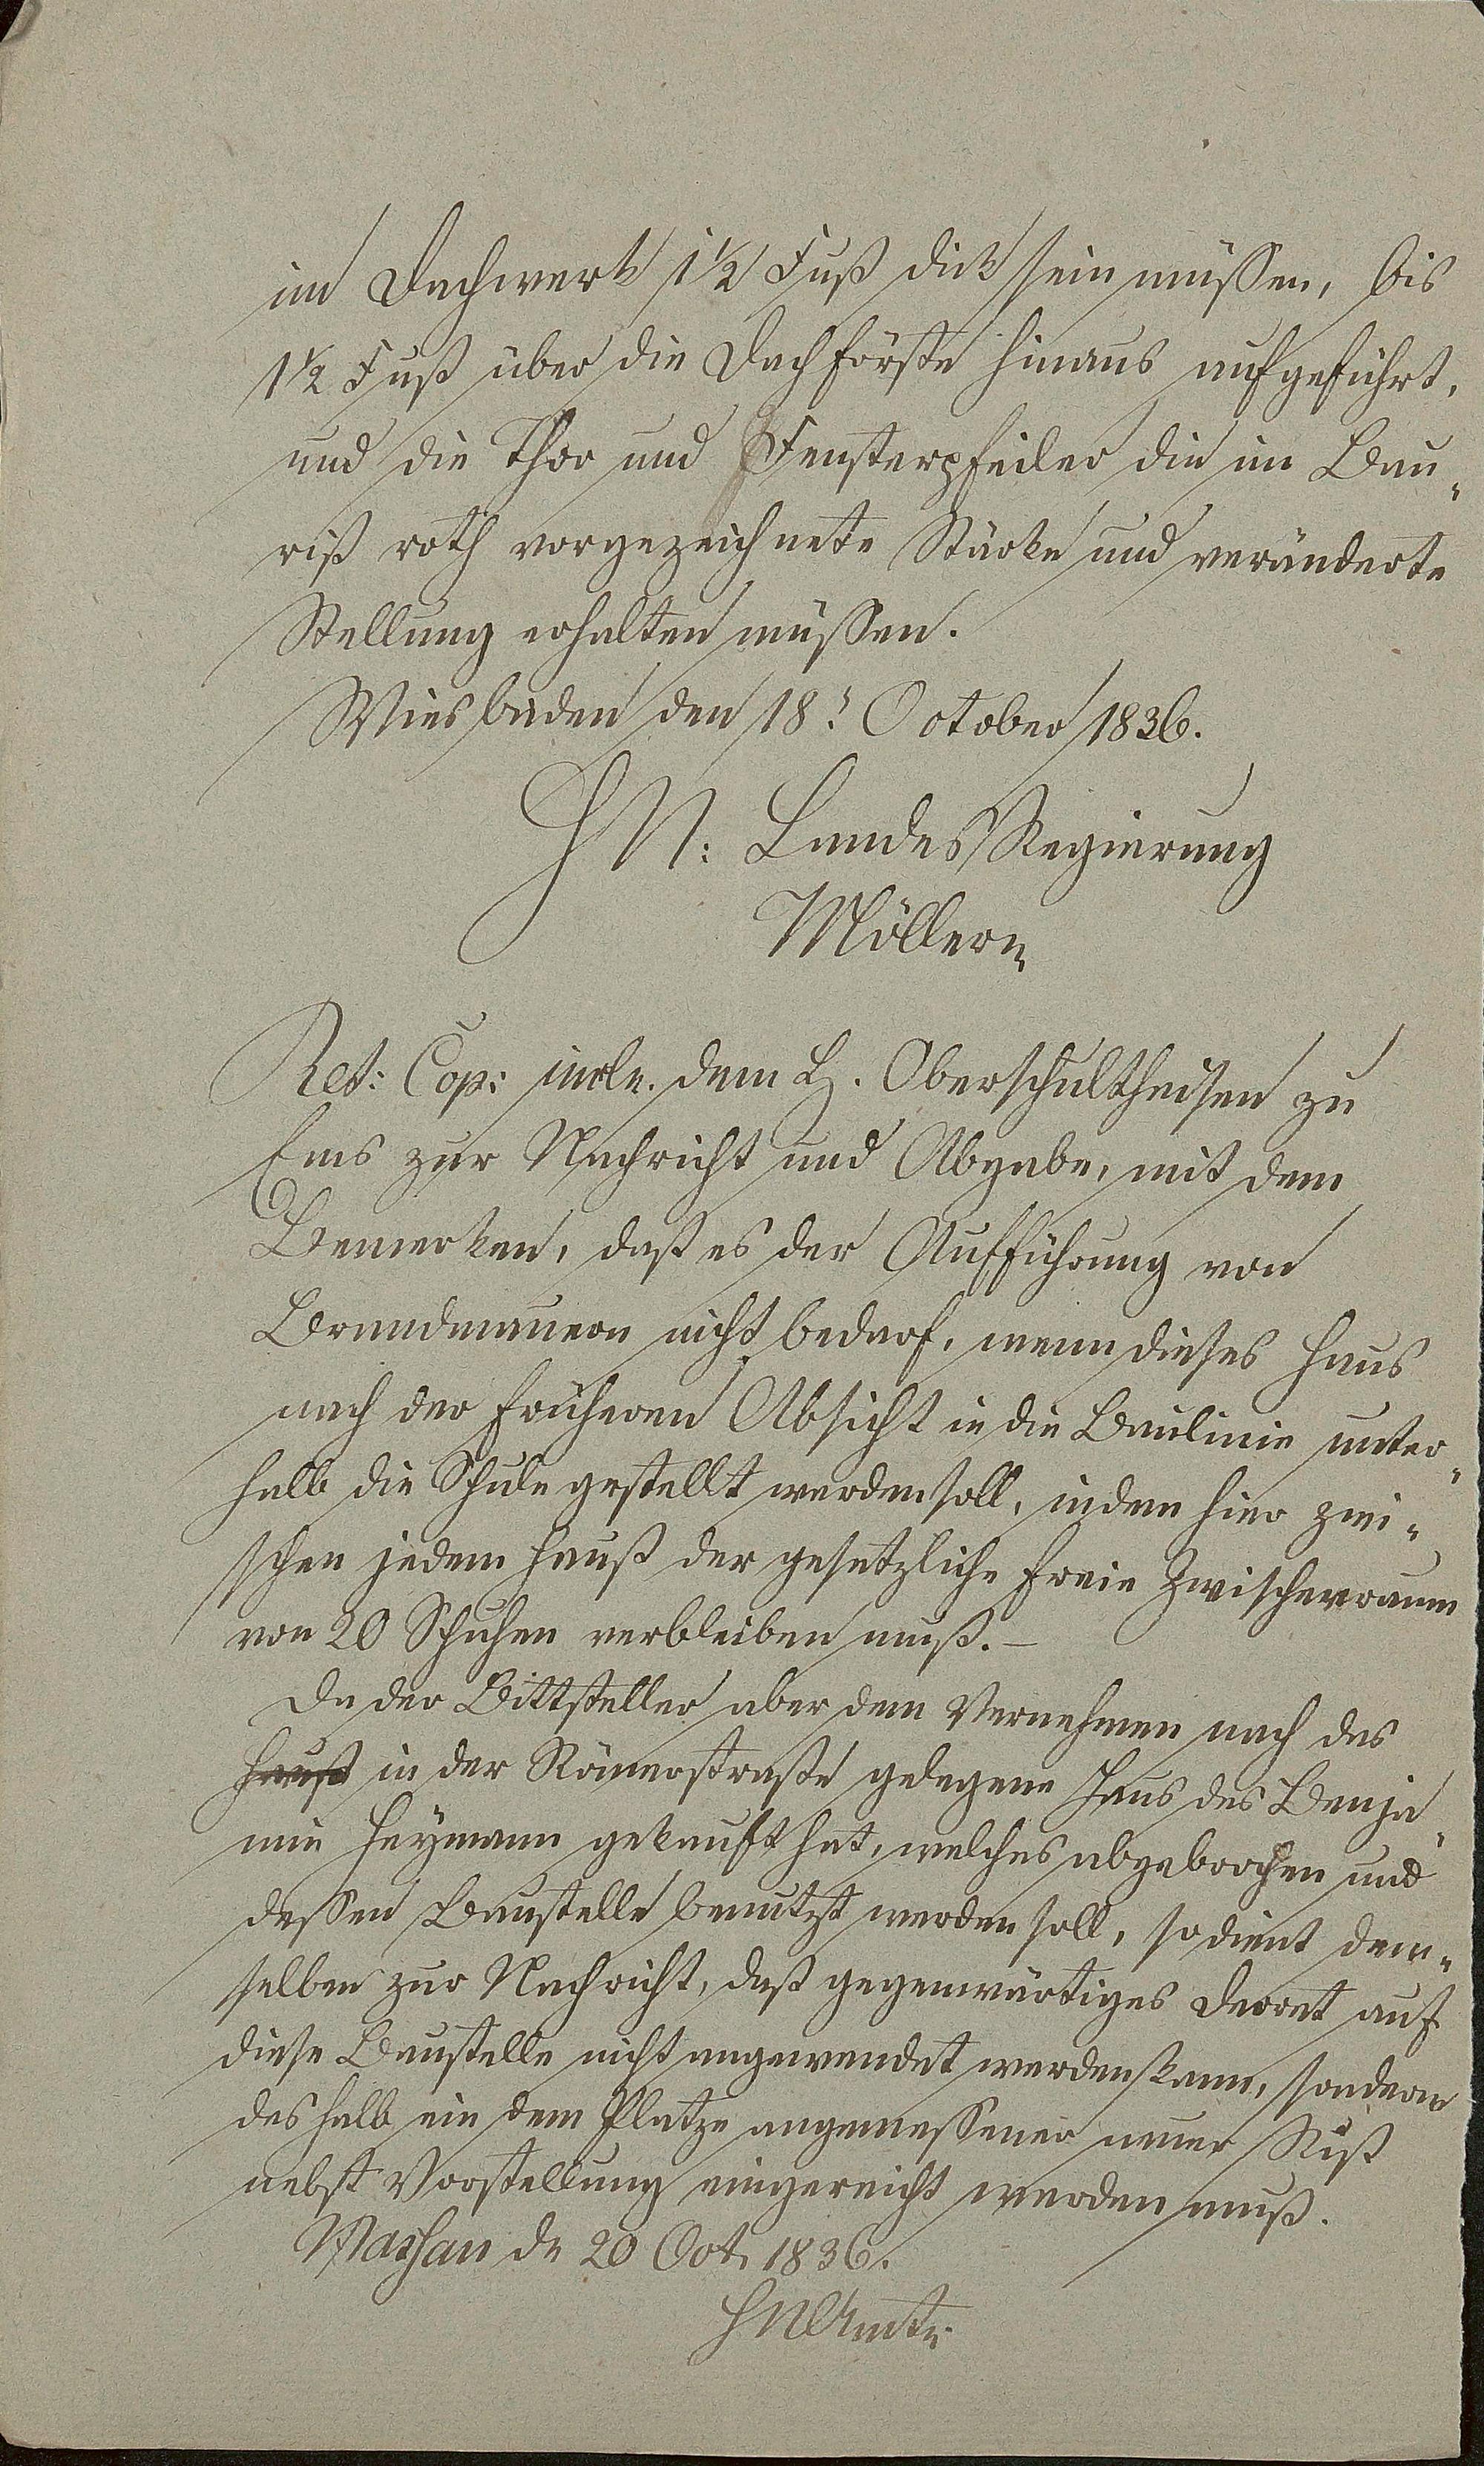 im Dachwerk 1½ Fuß dick sein müssen, bis
1½ Fuß über die Dachförste hinaus aufgeführt,
und die Thor und Fensterpfeiler die im Bau„
riß roth vorgezeichnete Stärke und veränderte
Stellung erhalten müssen.
Wiesbaden den 18t October 1836.
H N: Landes Regierung
Möller
Ret: Cop: dem H. Oberschultheisen zu
Ems zur Nachricht und Abgabe, mit dem
Bemerken, daß es der Aufführung von
Brandmauern nicht bedarf, wenn dieses Haus
nach der früheren Absicht in die Baulinie unter„
halb die Schule gestellt werden soll, indem hier zwi„
schen jedem Hauß der gesetzliche freie Zwischenraum
von 20 Schuhen verbleiben muß. –
Da der Bittsteller aber dem Vernehmen nach das
Hauß in der Römerstraße gelegene Haus des Benja„
min Heymann gekauft hat, welches abgebrochen und
dessen Baustelle benutzt werden soll, so dient dem„
selben zur Nachricht, daß gegenwärtiges Decret auf
diese Baustelle nicht angewendet werden kann, sondern
deshalb ein dem Platze angemessener neuer Riß
nebst Vorstellung eingereicht werden muß.
Nassau d 20 Oct. 1836.
HN Amt